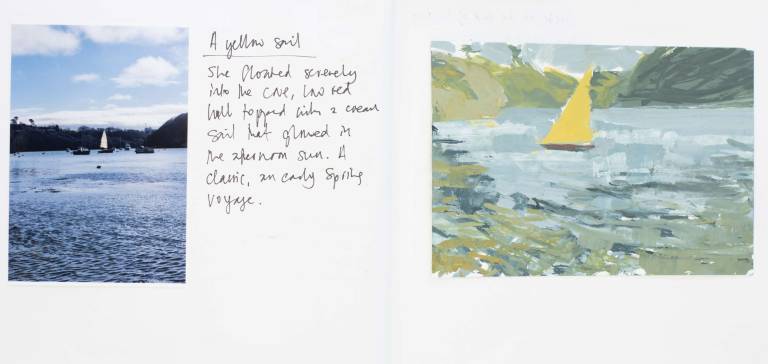 A yellow sail
She floated serenely
into the cove, low red
hull topped with a cream
sail that glowed in
the afternoon sun. A
classic, an early Spring
voyage.